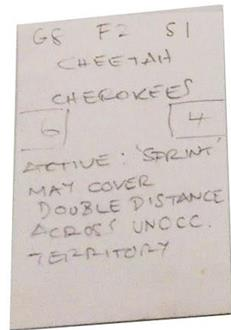 G8 F2 S1
CHEETAH
CHEROKEES
6 4
ACTIVE: 'SPRINT'
MAY COVER
DOUBLE DISTANCE
ACROSS UNOCC.
TERRITORY